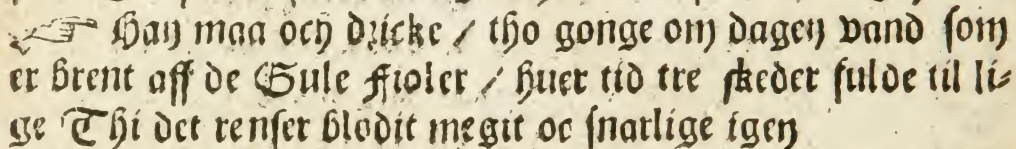 ☞ Han maa och dricke / tho gonge om dagen vand som
er brent aff de Gule Fioler / huer tid tre skeder fulde til li⸗
ge Thi det renser blodit megit oc snarlige igen